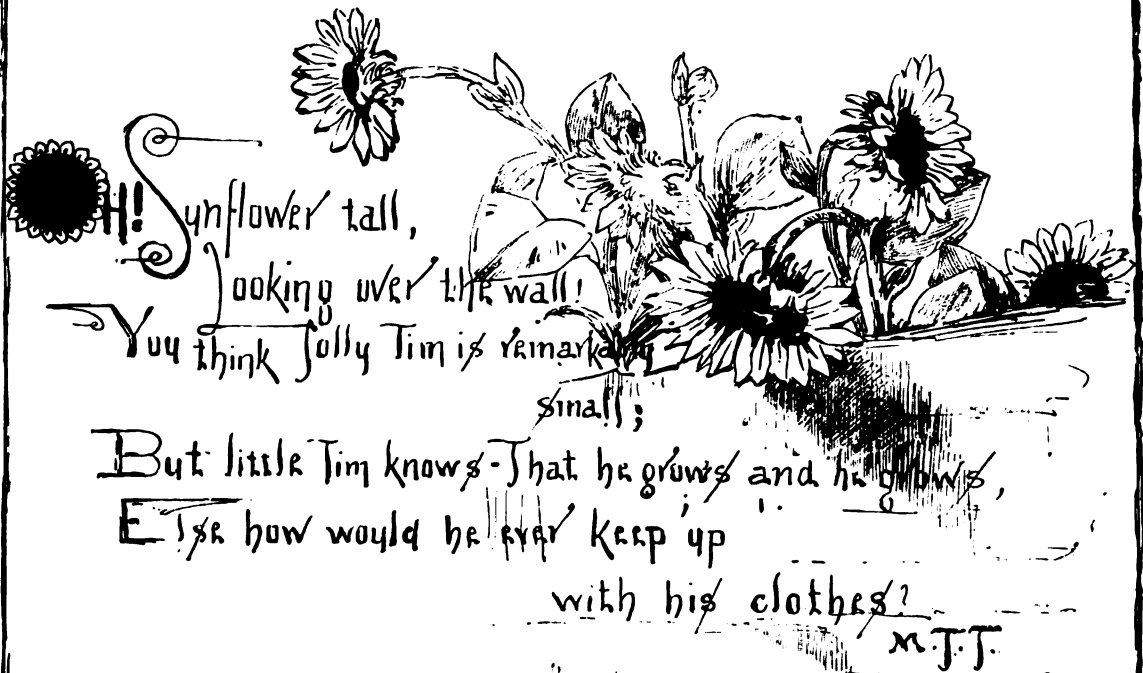 OH! Sunflower tall,
Looking over the wall!
You think Jolly Tim is remarkably
small;
But little Tim knows-That he grows and he grows,
Else how would he ever keep up
with his clothes?
M.J.J.